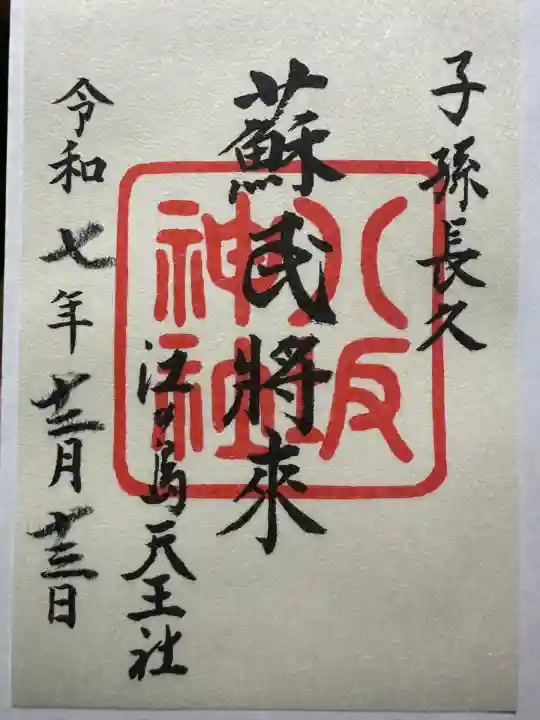 子孫長久
蘇民將來
江ノ島天王社
令和七年十二月十三日
八坂
神社